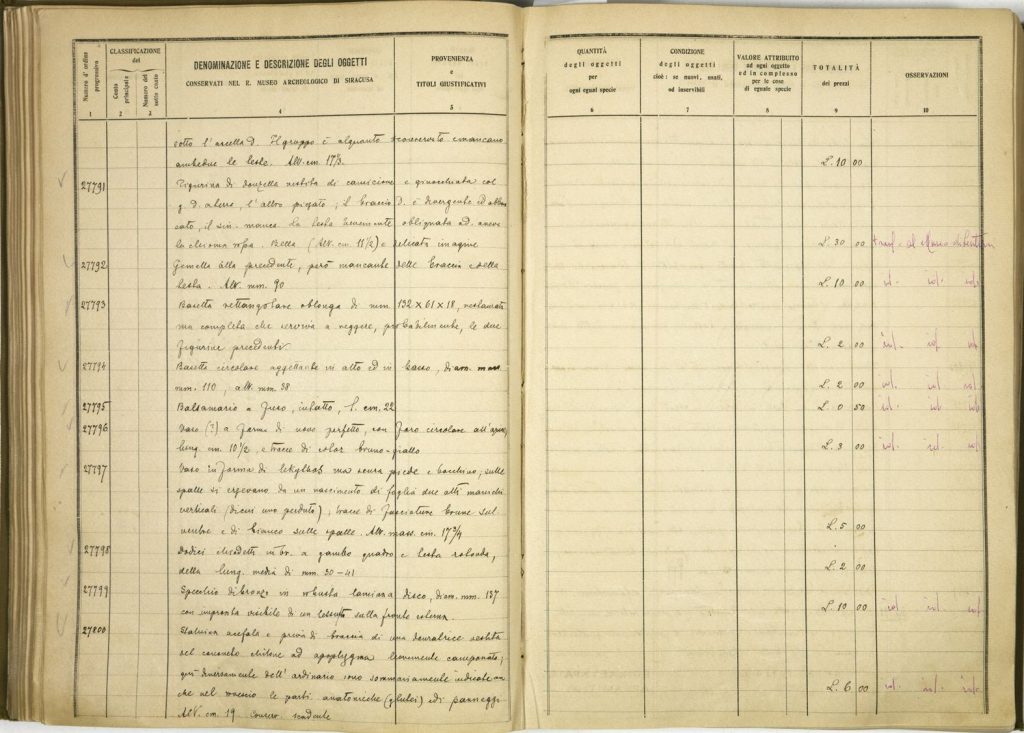 Numero d'ordine progressivo
CLASSIFICAZIONE del
Conto principale
Numero del sotto conto
DENOMINAZIONE E DESCRIZIONE DEGLI OGGETTI
CONSERVATI NEL R. MUSEO ARCHEOLOGICO DI SIRACUSA
PROVENIENZA
e
TITOLI GIUSTIFICATIVI
1 2 3 4 5
sotto l'ascella D. Il gruppo è alquanto sconservito e mancano
ambedue le teste. Alt. cm. 17,3.
27791 Figurina di donzella vestita di camicione e ginocchiata col
g. D. a terra, l'altro piegato; il braccio D. è divergente ed
il sin. manca la testa lievemente obliquata ad
la chioma rossa. Bella (Alt. cm. 11 1/2) e delicata imagine
27792 Gemella alla precedente, però mancante delle braccia e della
testa. Alt. mm. 90
27793 Basetta rettangolare oblonga di mm. 132 X 61 X 18, restaurata
ma completa che serviva a reggere, probabilmente, le due
figurine precedenti.
27794 Basetta circolare aggettante in alto ed in basso, diam. mass.
mm. 110, alt. mm. 38
27795 Balsamario a fuso, intatto, l. cm. 22
27796 Vaso (?) a forma di uovo perfetto, con foro circolare all'apice,
lung. cm. 10 1/2, e tracce di color bruno-giallo
27797 Vaso in forma di lekythos ma senza piede e bocchino; sulle
spalle si ergevano da un nascimento di foglia due alti manichi
verticali (di cui uno perduto); tracce di fasciature brune sul
ventre e di bianco sulle spalle. Alt. mass. cm. 17 3/4
27798 Dodici chiodetti in br. a gambo quadro e testa rotonda,
della lung. media di mm. 30-41
27799 Specchio di bronzo in robusta lamina a disco, diam. mm. 137
con impronta visibile di un tessuto sulla fronte esterna.
27800 Statuina acefala e priva di braccia di una danzatrice vestita
del consueto chitone ad apoptygma lievemente campanato;
qui diversamente dell'ordinario sono sommariamente indicate an
che nel rovescio le parti anatomiche (glutei) ed i panneggi
Alt. cm. 19 Conserv. scadente
QUANTITÀ
degli oggetti
per
ogni egual specie
CONDIZIONE
degli oggetti
cioè: se nuovi, usati,
od inservibili
VALORE ATTRIBUITO
ad ogni oggetto
ed in complesso
per le cose
di eguale specie
TOTALITÀ
dei prezzi
OSSERVAZIONI
6 7 8 9 10
L. 10 00
L. 30 00 al Museo di Lentini
L. 10 00 id. id. id.
L. 2 00 id. id. id.
L. 2 00 id. id. id.
L. 0 50 id. id. id.
L. 3 00 id. id. id.
L. 5 00
L. 2 00
L. 10 00 id. id. id.
L. 6 00 id. id. id.